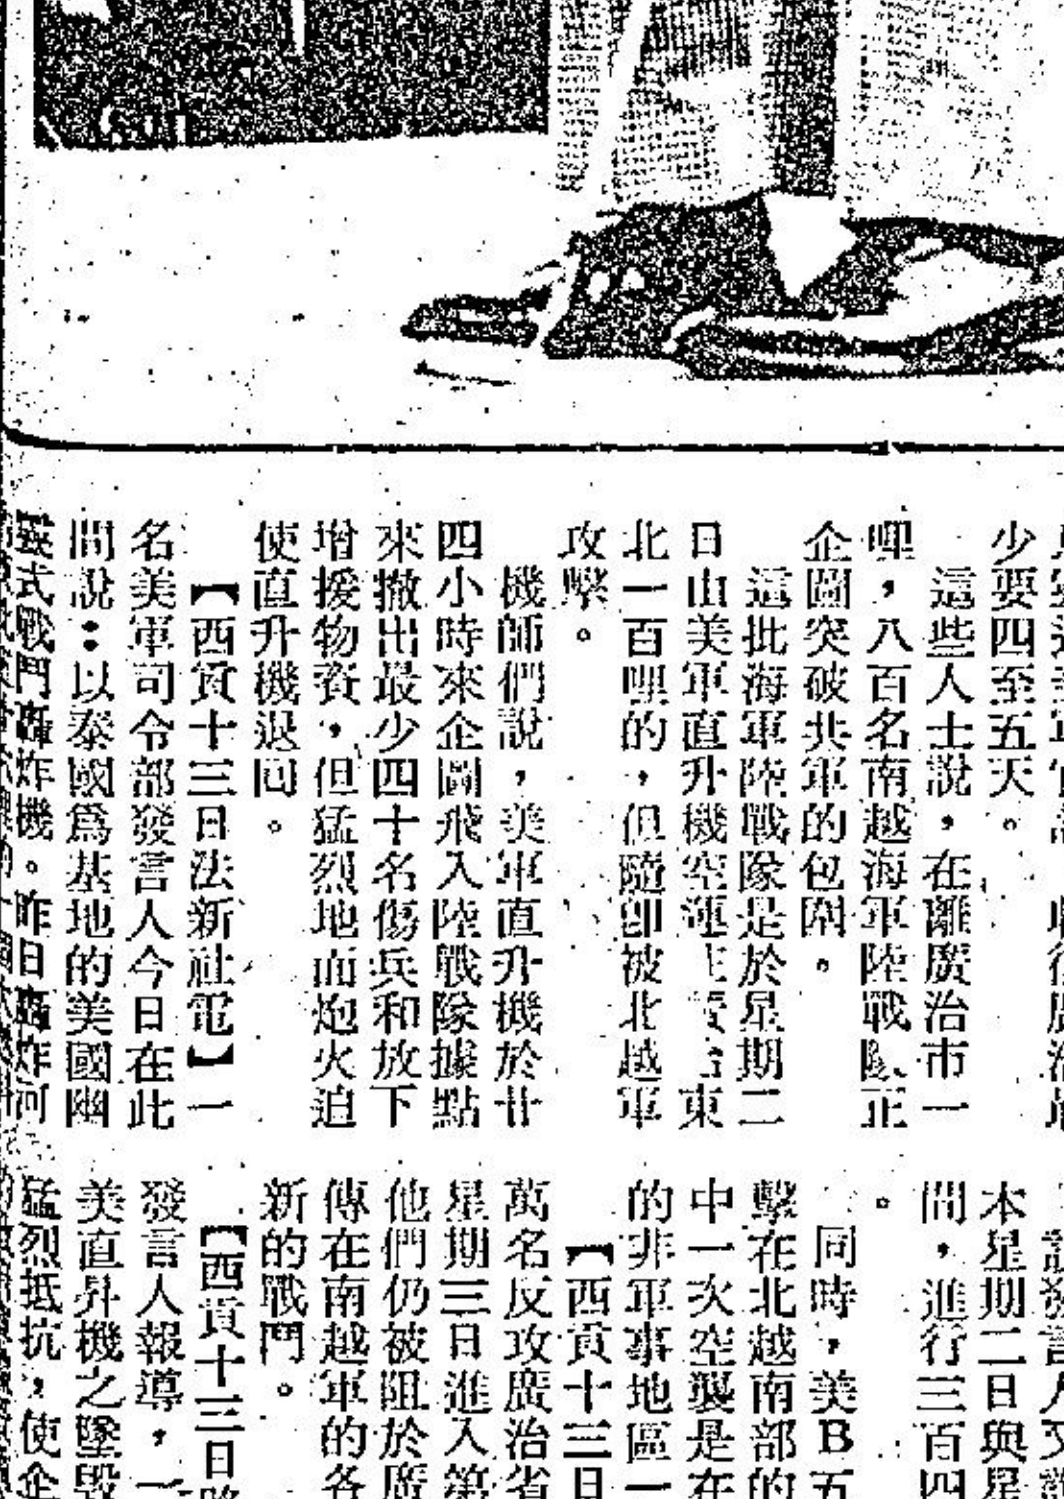 少要四至五天。
這些人士說，在離廣治市一
哩，八百名南越海軍陸戰隊正
企圖突破共軍的包圍。
這批海軍陸戰隊是於星期二
日由美軍直升機空運 東
北一百哩的，但隨卽被北越軍
攻擊。
機師們說，美軍直升機於廿
四小時來企圖飛入陸戰隊據點
來撤出最少四十名傷兵和放下
增援物資，但猛烈地面炮火迫
使直升機退回。
【西貢十三日法新社電】一
名美軍司令部發言人今日在此
間說：以泰國爲基地的美國幽
式戰鬥轟炸機。昨日轟炸河
本星期二日與星
間，進行三百四
。
同時，美B五
擊在北越南部的
中一次空襲是在
的非軍事地區一
【西貢十三日
萬名反攻廣治省
星期三日進入第
他們仍被阻於廣
傳在南越軍的各
新的戰鬥。
【西貢十三日路
發言人報導，一
美直昇機之墜毀
猛烈抵抗，使企